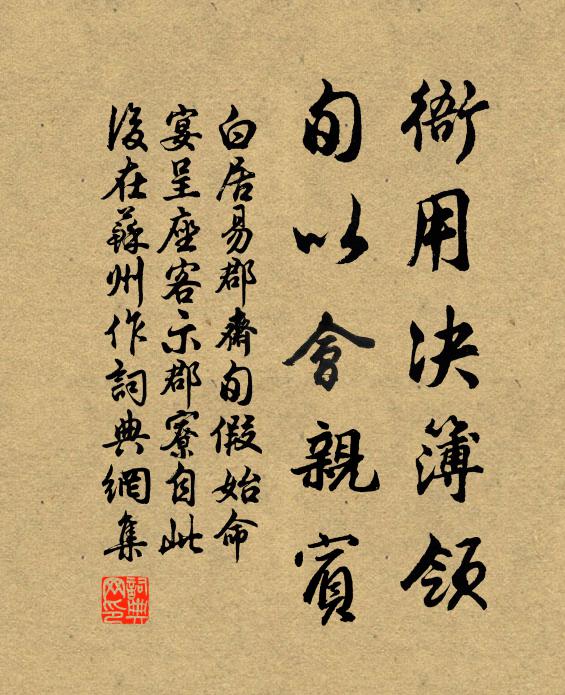 衙用决簿領
旬以會親賓
白居易郡齋旬假始命
宴呈座客示郡寮自此
後在蘇州作詞典網集
詞典網印